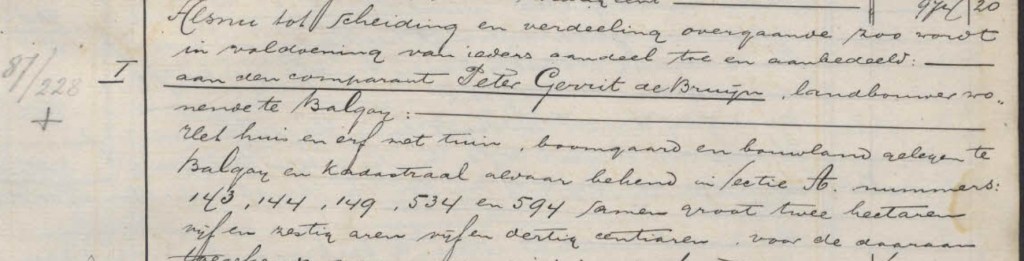 971 20
Alsnu tot scheiding en verdeeling overgaande zoo wordt
in voldoening van ieders aandeel toe en aanbedeeld:
87/228 I aan den comparant Peter Gerrit de Bruijn, landbouwer wo„
+ nende te Balgoy:
Het huis en erf met tuin, boomgaard en bouwland gelegen te
Balgoy en kadastraal aldaar bekend in sectie A. nummers:
143, 144, 149, 534 en 594 samen groot twee hectaren
vijf en zestig aren vijf en dertig centiaren, voor de daaraan